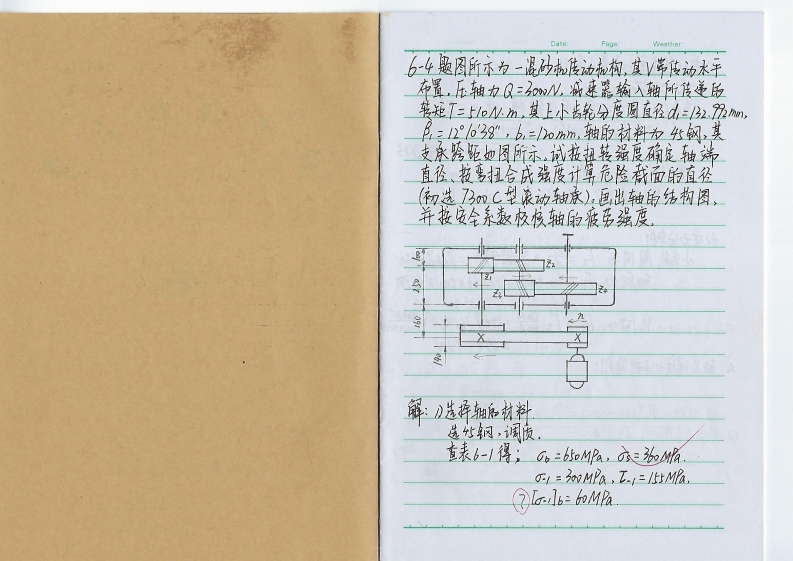 Date: Page: Weather:
6-4 题图所示为一混砂机传动机构,其V带传动水平
布置,压轴力Q=3000N,减速器输入轴所传递的
转矩T=510N·m,其上小齿轮分度圆直径d₁=132.992mm,
β₁=12°10'38", b₁=120mm,轴的材料为45钢,其
支承跨距如图所示,试按扭转强度确定轴端
直径、按弯扭合成强度计算危险截面的直径
(初选7300C型滚动轴承),画出轴的结构图,
并按安全系数校核轴的疲劳强度.
100
Z₁
Z₂
Z₃
Z₄
230
160
n
X
X
140
解:1)选择轴的材料.
选45钢,调质.
查表6-1得; σb=650MPa, σs=360MPa.
σ-1=300MPa, τ-1=155MPa.
? [σ-1]b=60MPa.